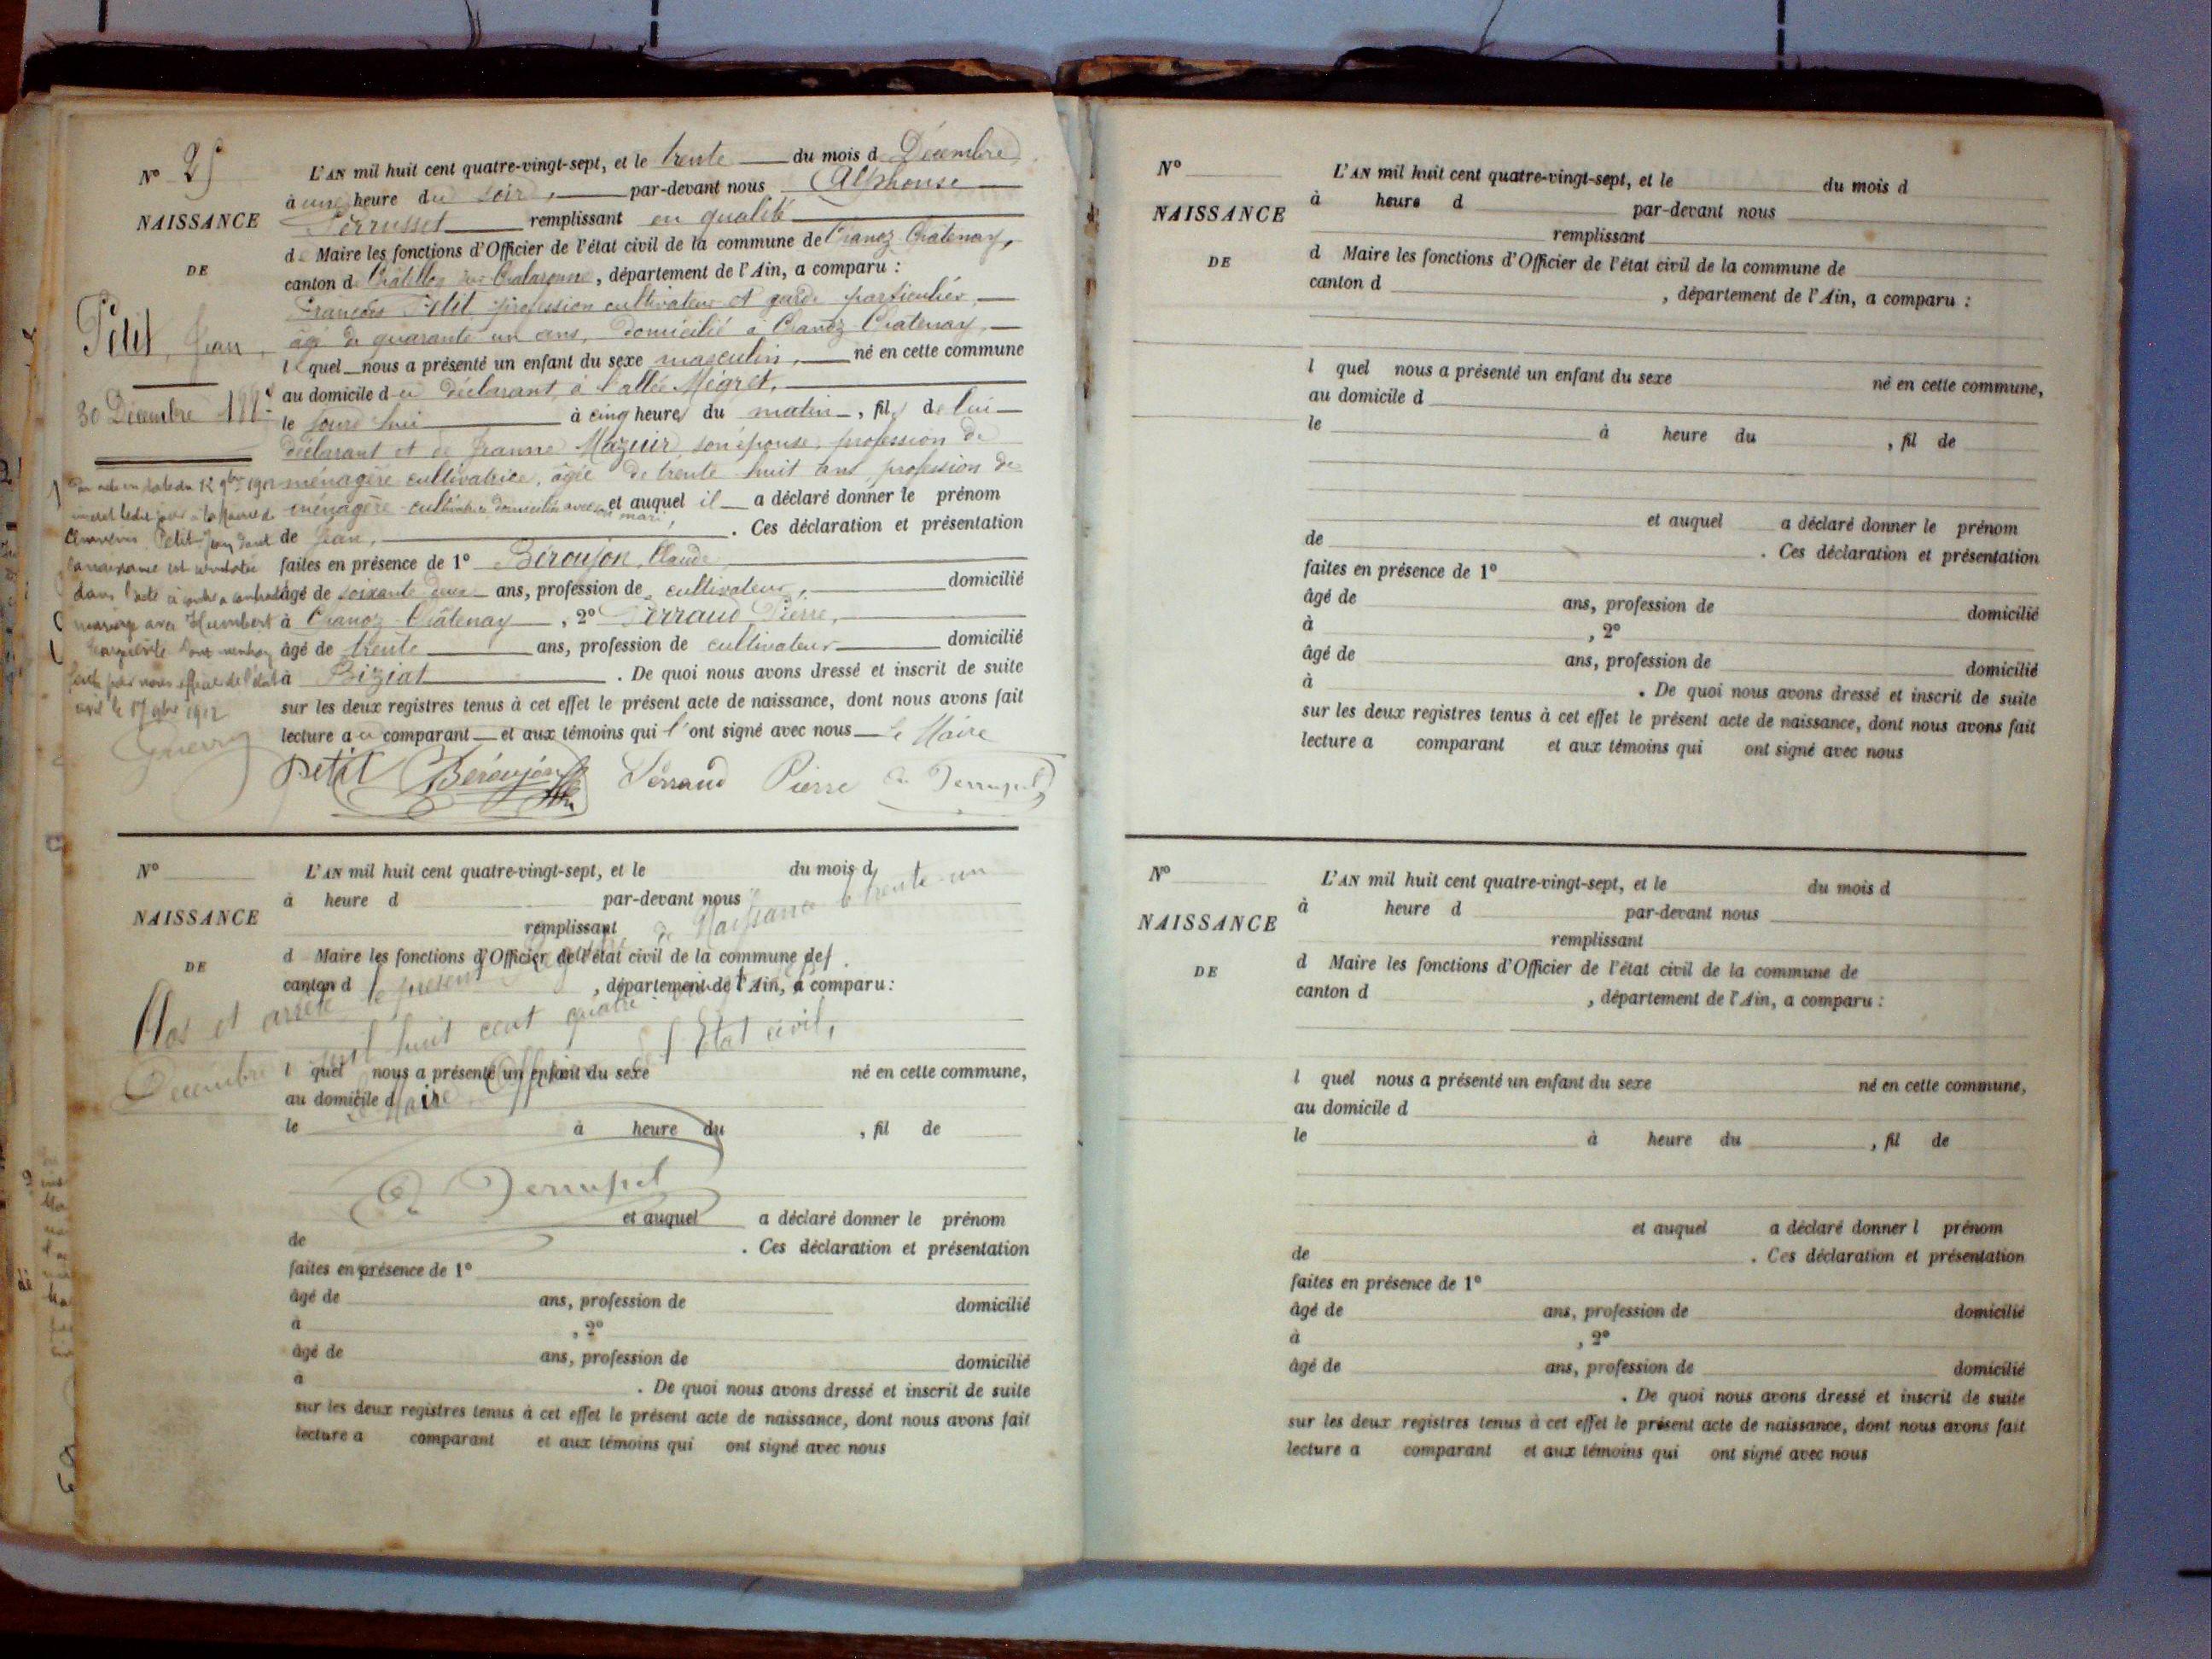 N° 25
NAISSANCE
DE
Petit, Jean,
30 Décembre 1887
L'AN mil huit cent quatre-vingt-sept, et le trente du mois d Décembre
à une heure du soir, par-devant nous Alphonse
Perrusset remplissant en qualité
de Maire les fonctions d'Officier de l'état civil de la commune de Chanoz Châtenay,
canton de Châtillon sur Chalaronne, département de l'Ain, a comparu :
François Petit profession cultivateur et garde particulier,
âgé de quarante un ans, domicilié à Chanoz-Chatenay,
lequel nous a présenté un enfant du sexe masculin, né en cette commune
au domicile du déclarant, à l'allée Mégret,
le jourd'hui à cinq heures du matin, fils de lui
déclarant et de Jeanne Mazuir, son épouse, profession de
ménagère cultivatrice, âgée de trente huit ans, profession de
ménagère cultivatrice domiciliée avec son mari, et auquel il a déclaré donner le prénom
de Jean, . Ces déclaration et présentation
faites en présence de 1° Béroujon Claude
âgé de soixante ans, profession de cultivateur, domicilié
à Chanoz-Châtenay, 2° Ferraud Pierre,
âgé de trente ans, profession de cultivateur domicilié
à Biziat . De quoi nous avons dressé et inscrit de suite
sur les deux registres tenus à cet effet le présent acte de naissance, dont nous avons fait
lecture au comparant et aux témoins qui l'ont signé avec nous le Maire
Petit Béroujon Ferraud Pierre A. Perrusset
Par acte en date du 12 9bre 1912
Petit Jean dont
la naissance est constatée
dans l'acte ci contre a contracté
mariage avec Humbert
Marguerite dont mention
faite par nous officier de l'état
civil le 17 9bre 1912
Guerry
N°
NAISSANCE
DE
L'AN mil huit cent quatre-vingt-sept, et le du mois d
à heure d par-devant nous
remplissant
d Maire les fonctions d'Officier de l'état civil de la commune de
canton d , département de l'Ain, a comparu :
Clos et arrêté le présent Registre de Naissance le trente-un
Décembre mil huit cent quatre vingt sept.
Le Maire, Officier de l'Etat civil,
A. Perrusset
l quel nous a présenté un enfant du sexe né en cette commune,
au domicile d
le à heure du , fil de
et auquel a déclaré donner le prénom
de . Ces déclaration et présentation
faites en présence de 1°
âgé de ans, profession de domicilié
à , 2°
âgé de ans, profession de domicilié
à . De quoi nous avons dressé et inscrit de suite
sur les deux registres tenus à cet effet le présent acte de naissance, dont nous avons fait
lecture a comparant et aux témoins qui ont signé avec nous
N°
NAISSANCE
DE
L'AN mil huit cent quatre-vingt-sept, et le du mois d
à heure d par-devant nous
remplissant
d Maire les fonctions d'Officier de l'état civil de la commune de
canton d , département de l'Ain, a comparu :
l quel nous a présenté un enfant du sexe né en cette commune,
au domicile d
le à heure du , fil de
et auquel a déclaré donner le prénom
de . Ces déclaration et présentation
faites en présence de 1°
âgé de ans, profession de domicilié
à , 2°
âgé de ans, profession de domicilié
à . De quoi nous avons dressé et inscrit de suite
sur les deux registres tenus à cet effet le présent acte de naissance, dont nous avons fait
lecture a comparant et aux témoins qui ont signé avec nous
N°
NAISSANCE
DE
L'AN mil huit cent quatre-vingt-sept, et le du mois d
à heure d par-devant nous
remplissant
d Maire les fonctions d'Officier de l'état civil de la commune de
canton d , département de l'Ain, a comparu :
l quel nous a présenté un enfant du sexe né en cette commune,
au domicile d
le à heure du , fil de
et auquel a déclaré donner l prénom
de . Ces déclaration et présentation
faites en présence de 1°
âgé de ans, profession de domicilié
à , 2°
âgé de ans, profession de domicilié
. De quoi nous avons dressé et inscrit de suite
sur les deux registres tenus à cet effet le présent acte de naissance, dont nous avons fait
lecture a comparant et aux témoins qui ont signé avec nous